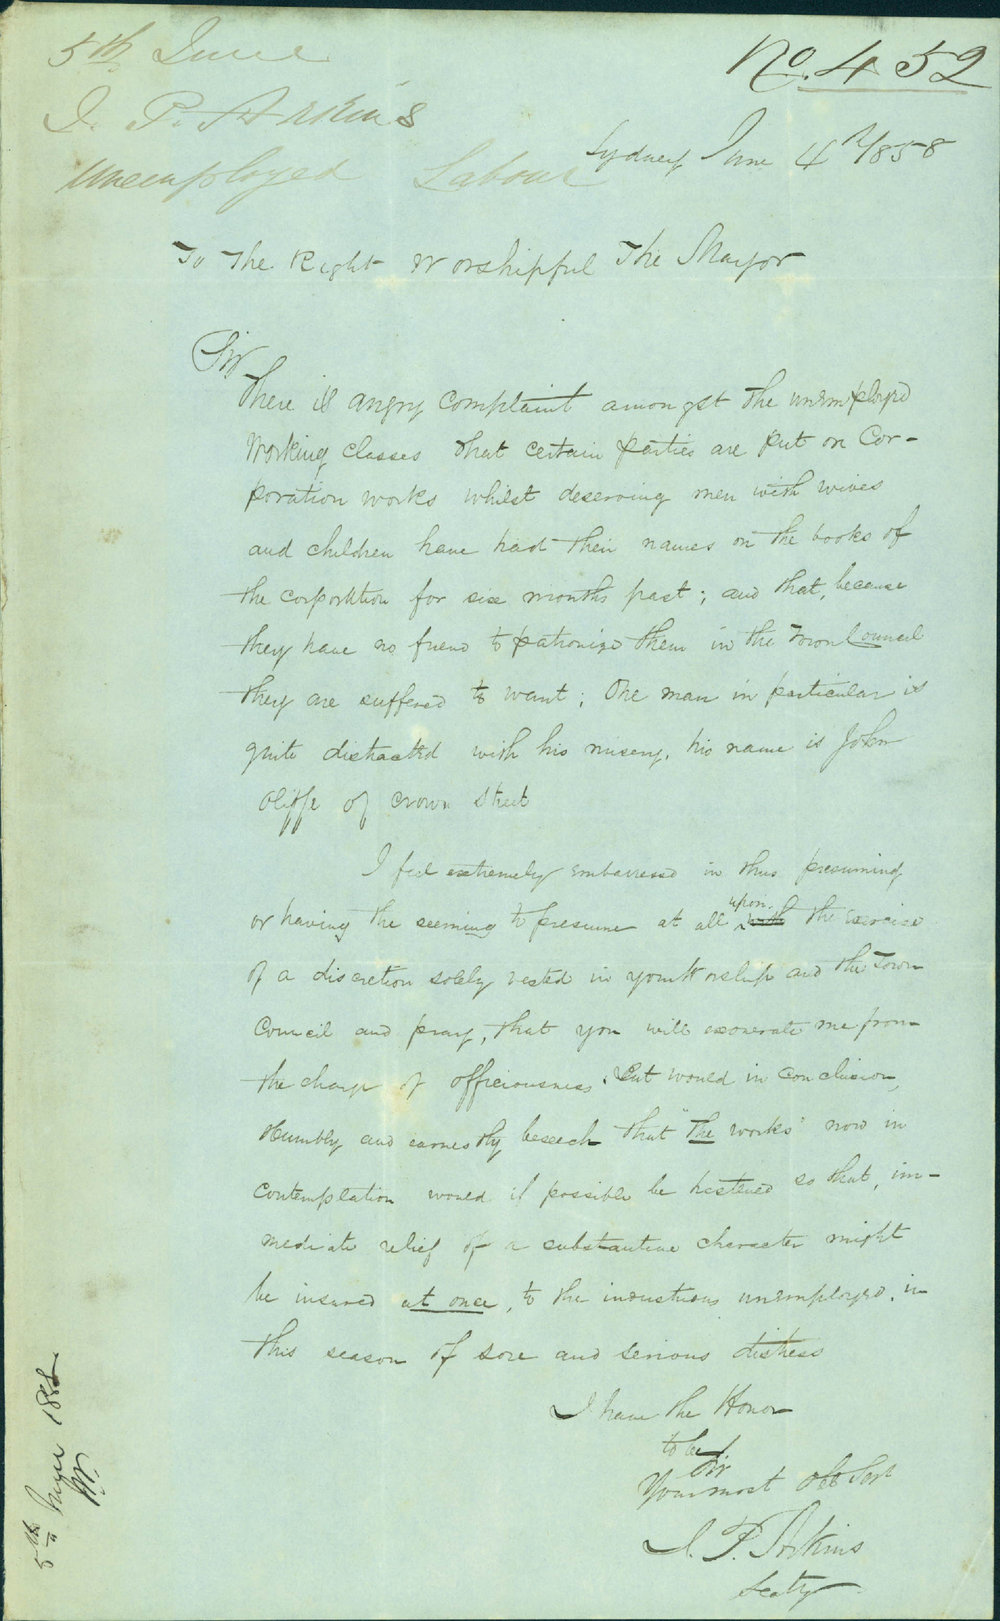 5th June
J. P. Arkins
Unemployed Labour
No. 452
Sydney June 4th/1858
To The Right Worshipful The Mayor
Sir
There is angry complaint amongst the unemployed
Working classes that certain parties are put on Cor-
poration works whilst deserving men with wives
and children have had their names on the books of
the corporation for six months past; and that, because
they have no friend to patronize them in the Town Council
they are suffered to want; One man in particular is
quite distracted with his misery, his name is John
Oliffe of crown street
I feel extremely embarrassed in thus presuming
or having the seeming to presume at all upon with the exercise
of a discretion solely vested in your Worship and the Town
Council and pray, that you will exonerate me from
the charge of officiousness. But would in conclusion,
Humbly and earnestly beseech that "The works" now in
contemplation would if possible be hastened so that, im-
mediate relief of a substantive character might
be insured at once, to the industrious unemployed, in
this season of sore and serious distress
I have the Honor
to be
Sir
Your most Obt Sert
J. P. Arkins
Secty
5th June 1858